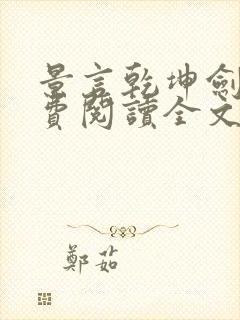 景言乾坤劍
費閱讀全文
鄭茹